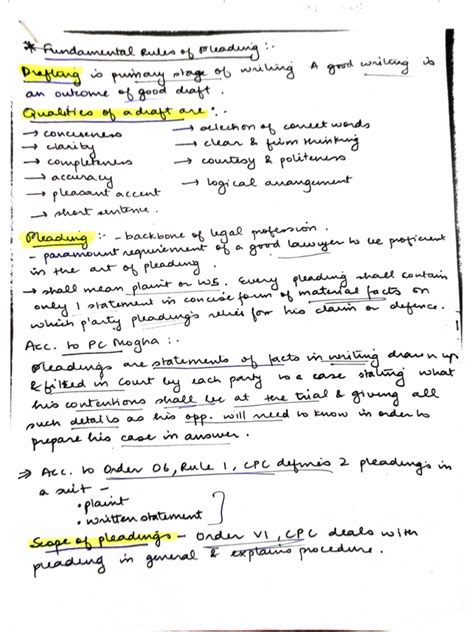 * Fundamental Rules of Pleading :-
Drafting is primary stage of writing A good writing is
an outcome of good draft.
Qualities of a draft are :-
→ conciseness → selection of correct words
→ clarity → clear & firm thinking
→ completeness → courtesy & politeness
→ accuracy → logical arrangement
→ pleasant accent
→ short sentence.
Pleading :- - backbone of legal profession.
- paramount requirement of a good lawyer to be proficient
in the art of pleading.
→ shall mean plaint or WS. Every pleading shall contain
only 1 statement in concise form of material facts on
which party pleadings relies for his claim or defence.
Acc. to PC Mogha :-
Pleadings are statements of facts in writing drawn up
& filled in Court by each party to a case stating what
his contentions shall be at the trial & giving all
such details as his opp. will need to know in order to
prepare his case in answer.
⇒ Acc. to Order 06, Rule 1, CPC defines 2 pleadings in
a suit -
• plaint
• written statement
Scope of pleadings - Order VI, CPC deals with
pleading in general & explains procedure.